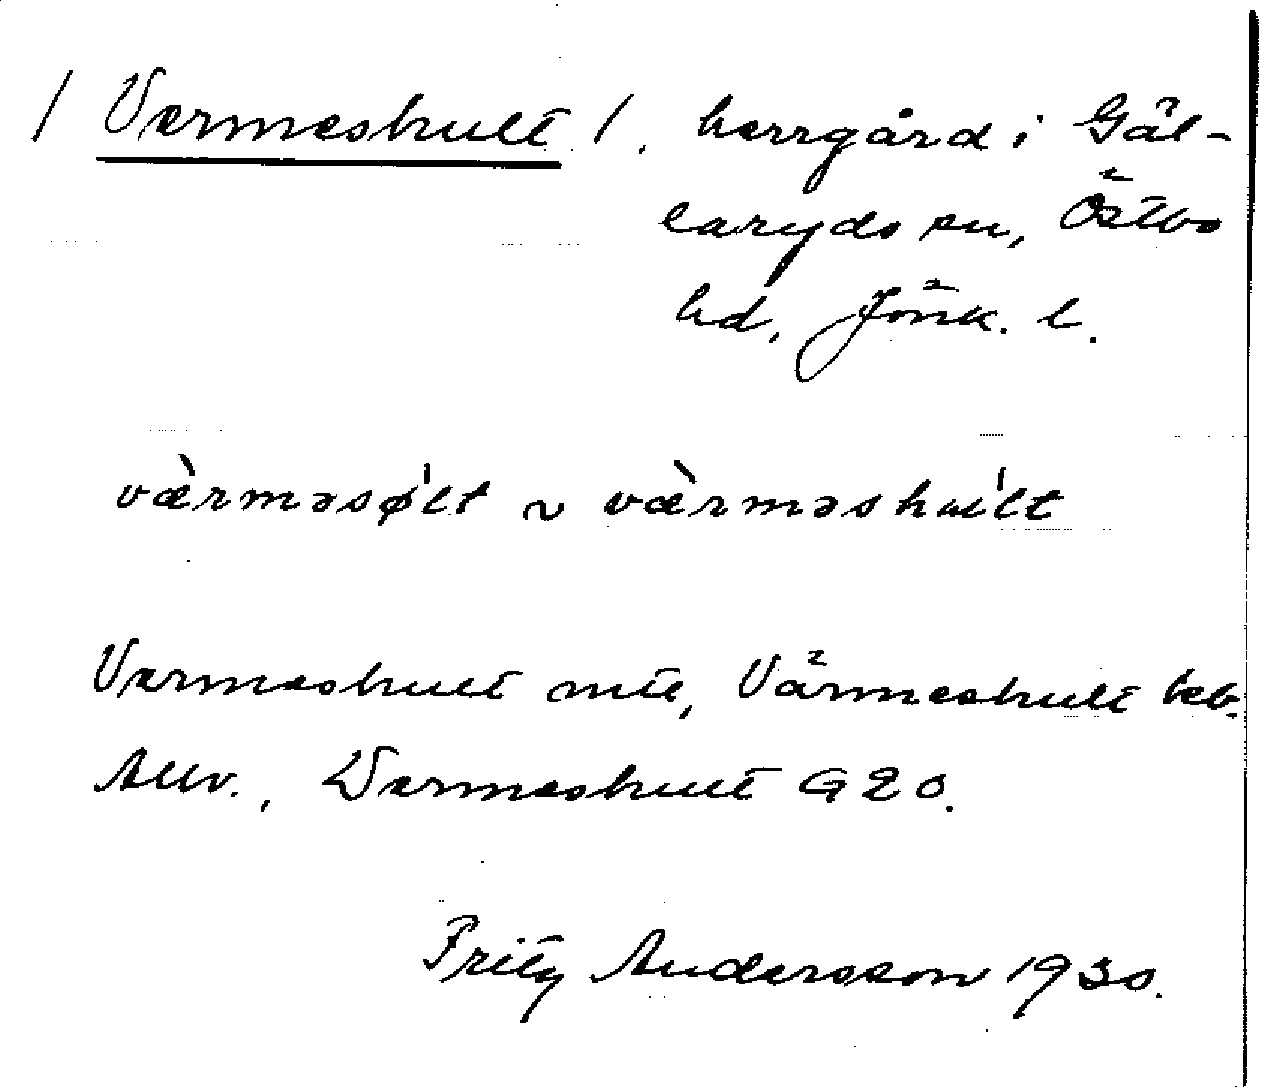 / Vermeshult /. herrgård i Gäl-
laryds sn, Östbo
hd, Jönk. l.
væ̀rməsǿlt ~ væ̀rməshúlt
Vermeshult mtl, Värmeshult beb.
Allv., Wermeshult G20.
Fritz Andersson 1930.